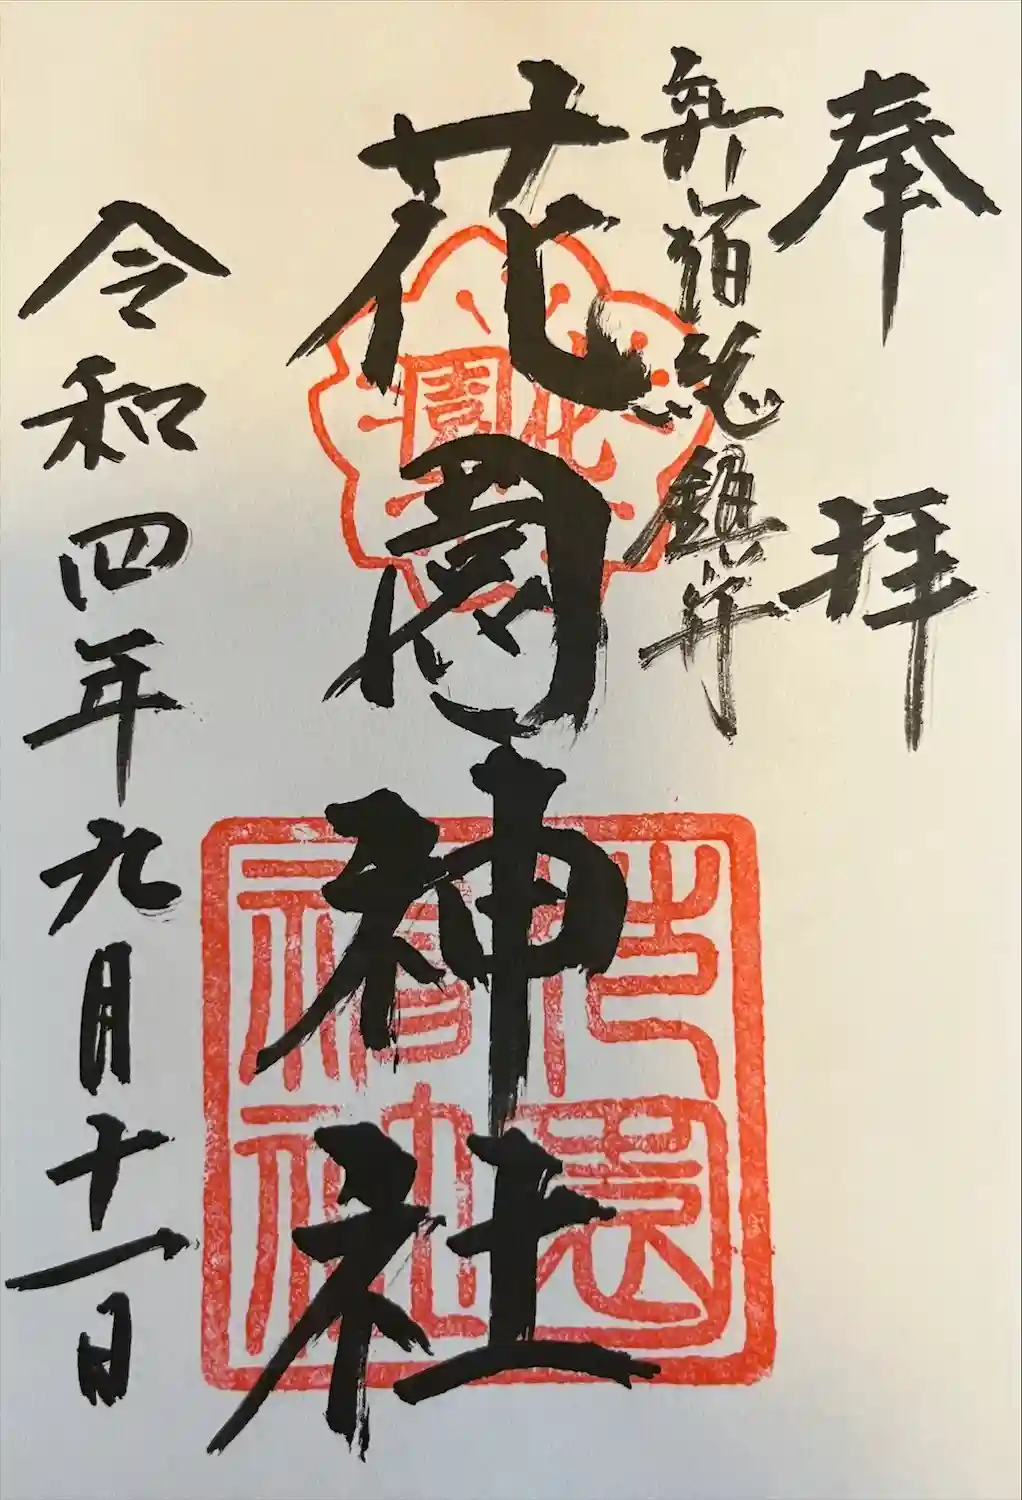 奉拝
新宿総鎮守
花園神社
花園
花園神社
令和四年九月十一日